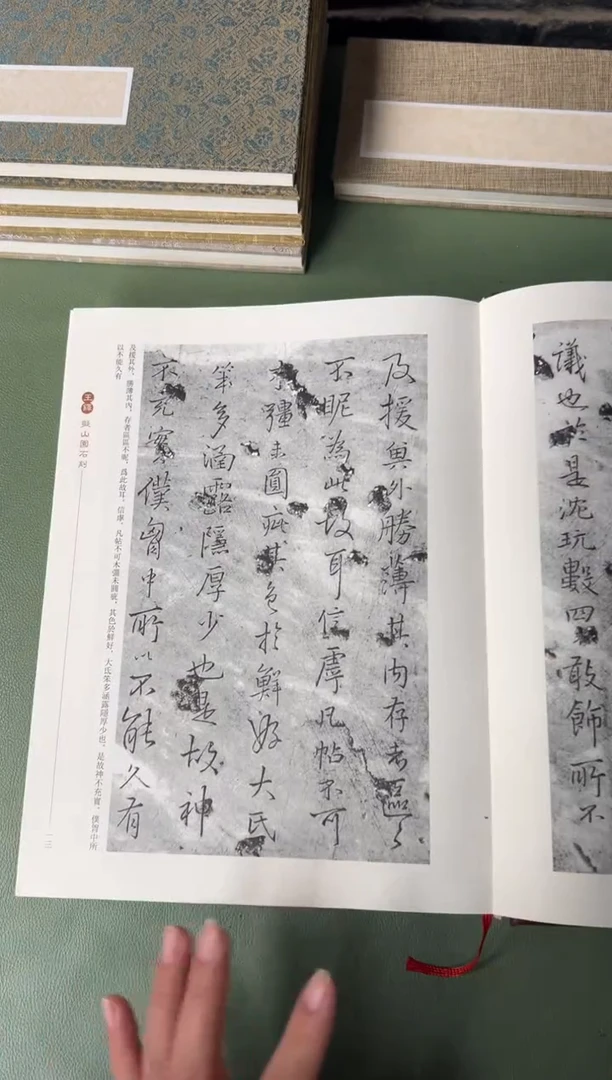 議也於是沈玩數四敢飾所不
及援與外勝薄其內存者區々
不昵為此故耳信虖凡帖不可
木彊未圓疵其色於鮮好大氏
笨多涵露隱厚少也是故神
不充實僕胷中所以不能久有
及援其外，勝薄其內，存者區區不昵，爲此故耳，信虖，凡帖不可木彊未圓疵，其色於鮮好，大氏笨多涵露隱厚少也，是故神不充實，僕胷中所
以不能久有
王鐸
山園石刻
一三